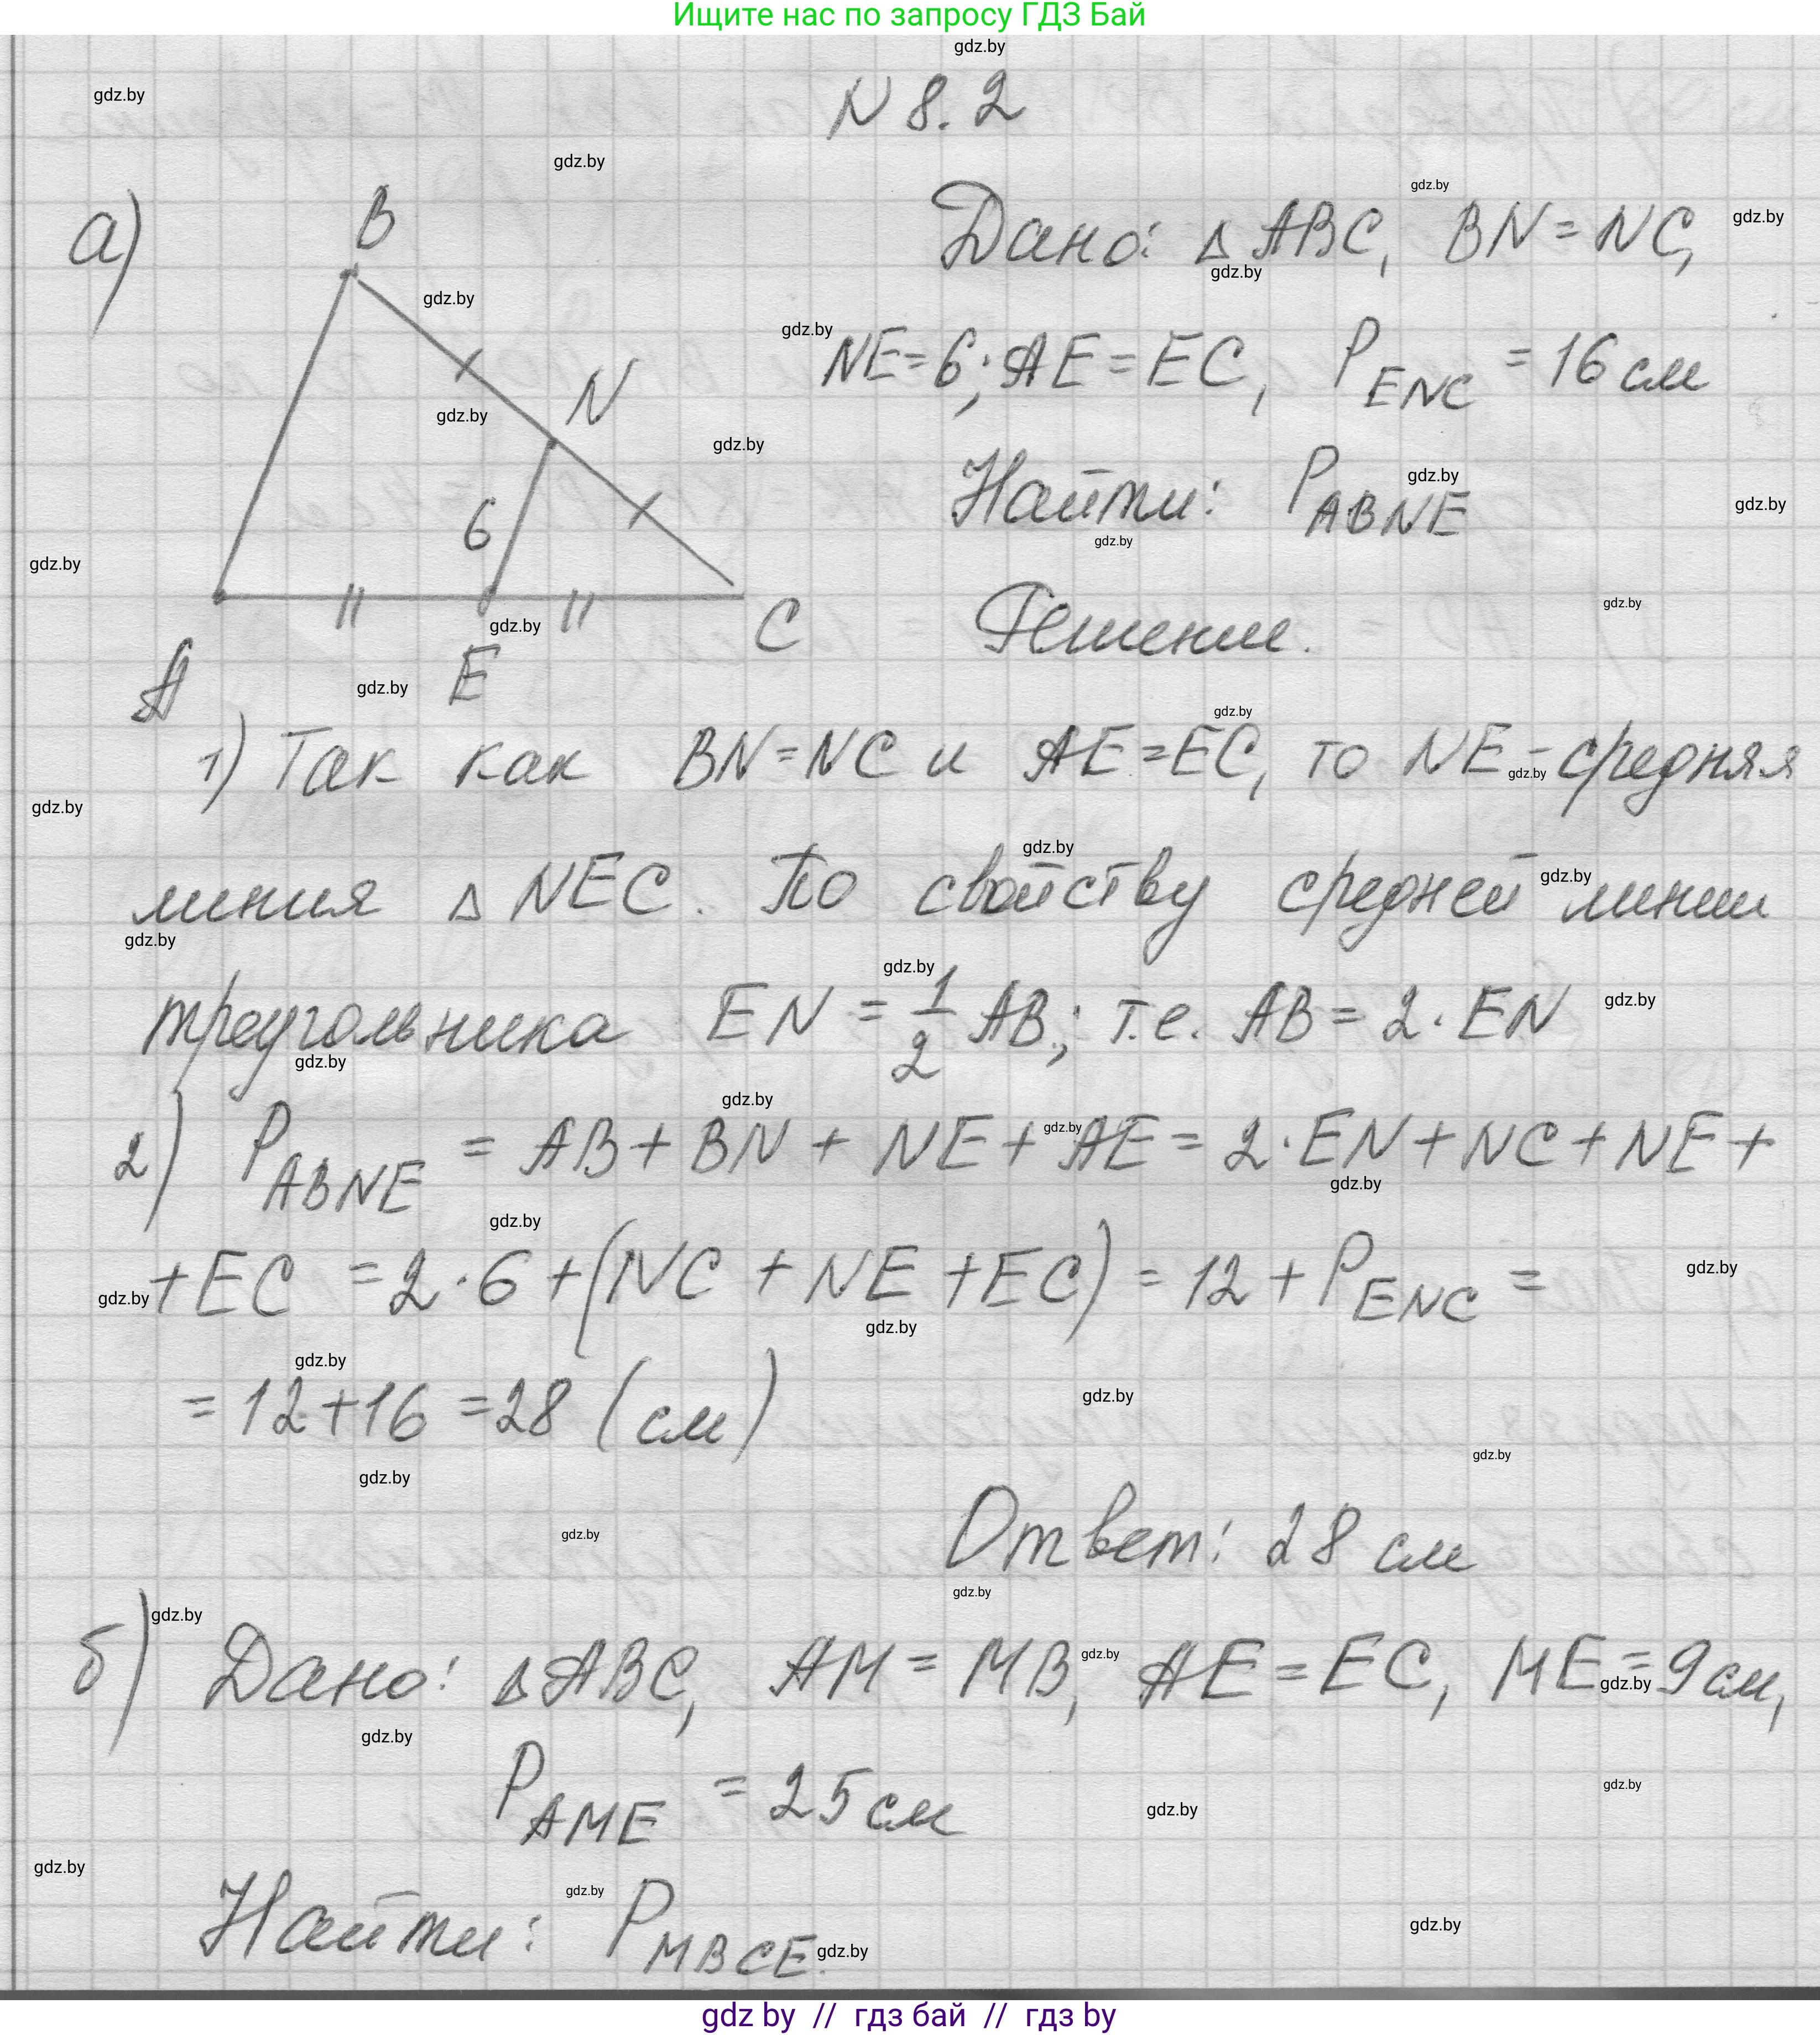 Ищите нас по запросу ГДЗ Бай
N 8.2
а)
B
N
6
A
E
C
Дано: △ ABC, BN = NC,
NE = 6; AE = EC, P ENC = 16 см
Найти: P ABNE
Решение.
1) Так как BN = NC и AE = EC, то NE - средняя
линия △ NEC. По свойству средней линии
треугольника EN = 1/2 AB; т.е. AB = 2 · EN
2) P ABNE = AB + BN + NE + AE = 2 · EN + NC + NE +
+ EC = 2 · 6 + (NC + NE + EC) = 12 + P ENC =
= 12 + 16 = 28 (см)
Ответ: 28 см
б) Дано: △ ABC, AM = MB, AE = EC, ME = 9 см,
P AME = 25 см
Найти: P MBCE.
gdz by // гдз бай // гдз by